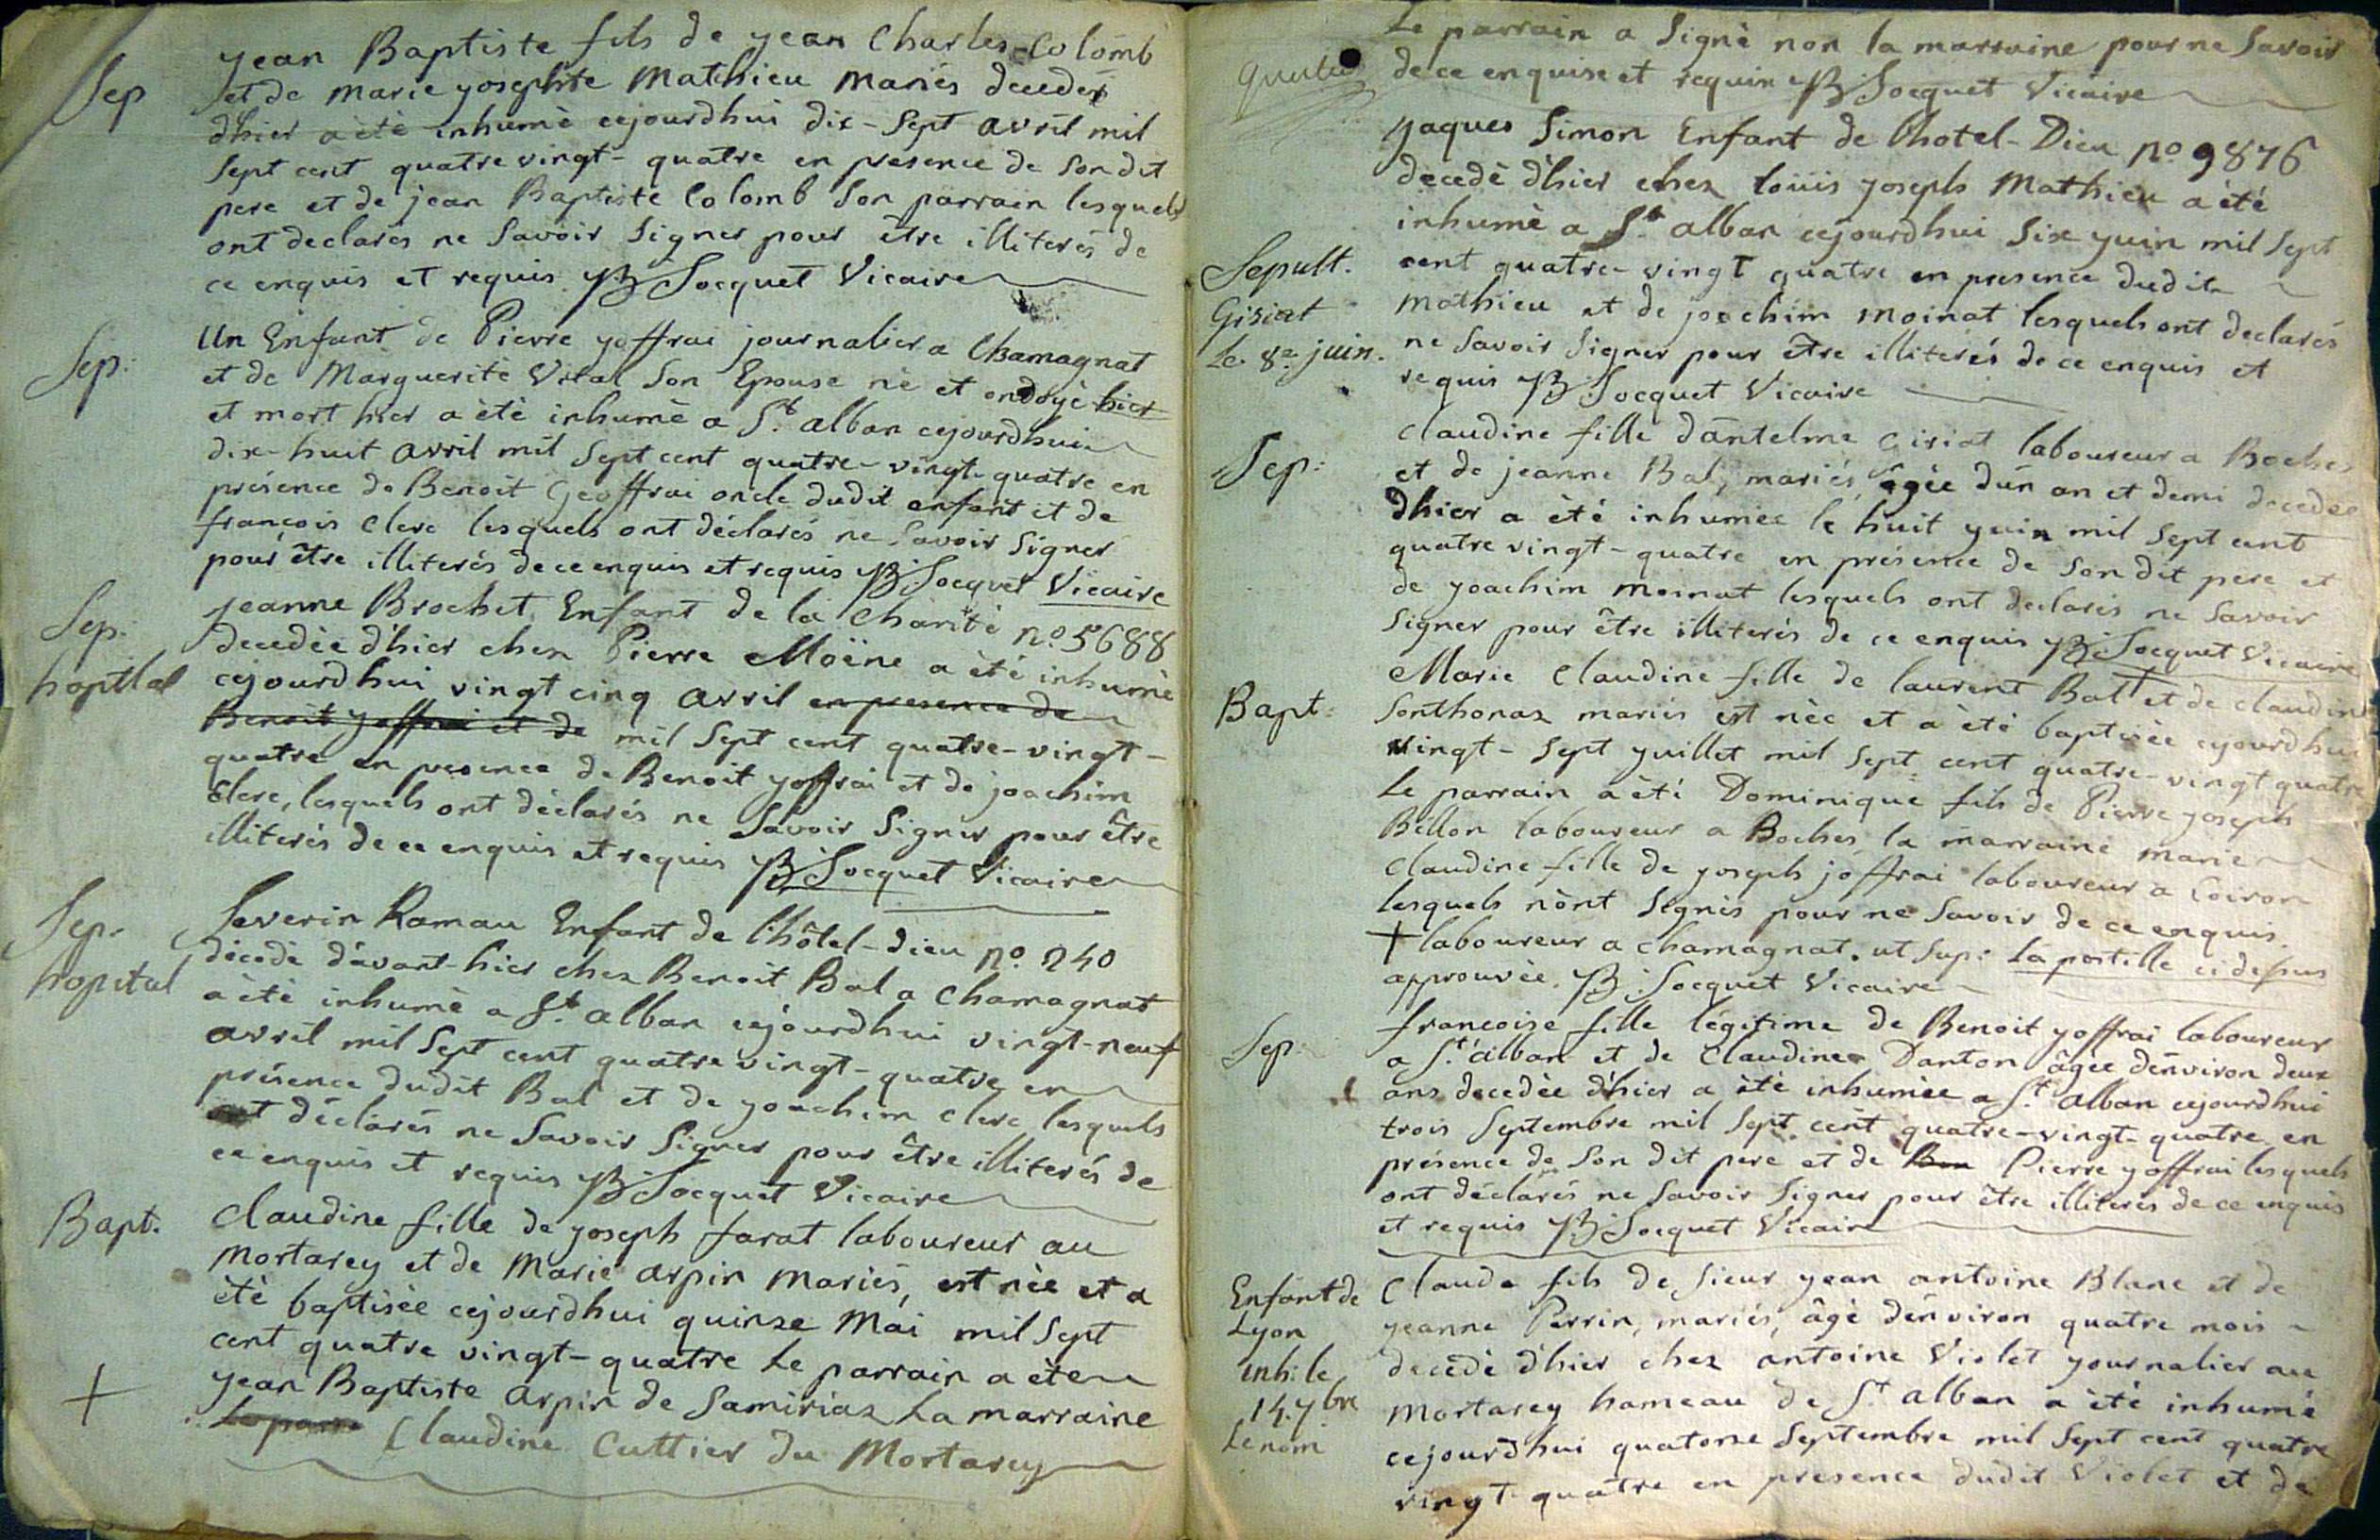 Sep
yean Baptiste fils de yean Charles Colomb
et de marie yosephte Mathieu mariés decedé
dhier a èté inhumè cejourdhui dix-Sept avril mil
Sept cent quatre vingt-quatre en presence de Son dit
pere et de jean Baptiste Colomb Son parrain lesquels
ont declarés ne Savoir Signer pour être illiterés de
ce enquis et requis JB Socquet Vicaire
Sep:
Un Enfant de Pierre yoffrai journalier a Chamagnat
et de Marguerite Vital Son Epouse né et ondoyé hier
et mort hier a èté inhumè a St. alban cejourdhui
dix-huit avril mil Sept cent quatre-vingt-quatre en
présence de Benoit Geoffrai oncle dudit enfant et de
françois Clerc lesquels ont déclarés ne Savoir Signer
pour être illiterés de ce enquis et requis JB Socquet Vicaire
Sep.
hopital
Jeanne Brochet Enfant de la Charité no. 5688
decedèe d'hier chez Pierre Moine a été inhumè
cejourdhui vingt cinq avril en presence de
Benoit yoffrai et de mil Sept cent quatre-vingt-
quatre en presence de Benoit yoffrai et de joachim
Clerc, lesquels ont déclarés ne Savoir Signer pour être
illiterés de ce enquis et requis JB Socquet Vicaire
Sep.
hopital
Severin Ramau Enfant de l'hôtel-dieu no. 240
décédé d'avant-hier chez Benoit Bal a Chamagnat
a èté inhumè a St. alban cejourdhui vingt-neuf
avril mil Sept cent quatre vingt-quatre en
présence dudit Bal et de yoachim Clerc lesquels
ont déclarés ne Savoir Signer pour être illiterés de
ce enquis et requis JB Socquet Vicaire
Bapt.
Claudine fille de yoseph farat laboureur au
mortarey et de Marie arpin mariés, est nèe et a
èté baptisèe cejourdhui quinze Mai mil Sept
cent quatre vingt-quatre Le parrain a èté
yean Baptiste arpin de Samiriaz La marraine
Claudine Cuttier du Mortarey
Le parrain a Signè non la marraine pour ne Savoir
de ce enquise et requise JB Socquet Vicaire
Sepult.
Giriat
Le. 8e juin.
yaques Simon Enfant de lhotel-Dieu no 9876
decedè d'hier chez loüis yoseph Mathieu a èté
inhumè a St alban cejourdhui Six yuin mil Sept
cent quatre-vingt quatre en presence dudit
Mathieu et de joachim moinat lesquels ont declarés
ne Savoir Signer pour être illiterés de ce enquis et
requis JB Socquet Vicaire
Sep:
Claudine fille d'antelme Giriat laboureur a Boches
et de jeanne Bal, mariés, agèe d'un an et demi decedèe
dhier a èté inhumèe le huit yuin mil Sept cent
quatre vingt-quatre en présence de Son dit pere et
de yoachim moinat lesquels ont declarés ne Savoir
Signer pour être illiterés de ce enquis JB Socquet Vicaire
Bapt:
Marie Claudine fille de laurent Bal + et de claudine
Sonthonaz mariés est nèe et a èté baptisèe cejourdhui
vingt-Sept yuillet mil Sept cent quatre-vingt quatre
Le parrain a èté Dominique fils de Pierre yoseph
Billon laboureur a Boches, la marraine marie
Claudine fille de yoseph joffrai laboureur a Coiron
lesquels n'ont Signés pour ne Savoir de ce enquis.
+ laboureur a chamagnat. ut Sup: la postille ci dessus
approuvèe. JB: Socquet Vicaire
Sep:
françoise fille légitime de Benoit yoffrai laboureur
a St. alban et de Claudine Danton âgèe d'environ deux
ans decedèe d'hier a èté inhumèe a St. alban cejourdhui
trois Septembre mil Sept cent quatre-vingt-quatre en
présence de Son dit pere et de Ben Pierre yoffrai lesquels
ont déclarés ne Savoir Signer pour être illiterés de ce enquis
et requis JB Socquet Vicaire
Enfant de
Lyon
inh: le
14. 7bre
Le nom
Claude fils de Sieur yean antoine Blanc et de
yeanne Perrin, mariés, âgè d'environ quatre mois
decédè d'hier chez antoine Violet yournalier au
mortarey hameau de St alban a èté inhumé
cejourdhui quatorze Septembre mil Sept cent quatre
vingt-quatre en presence dudit Violet et de